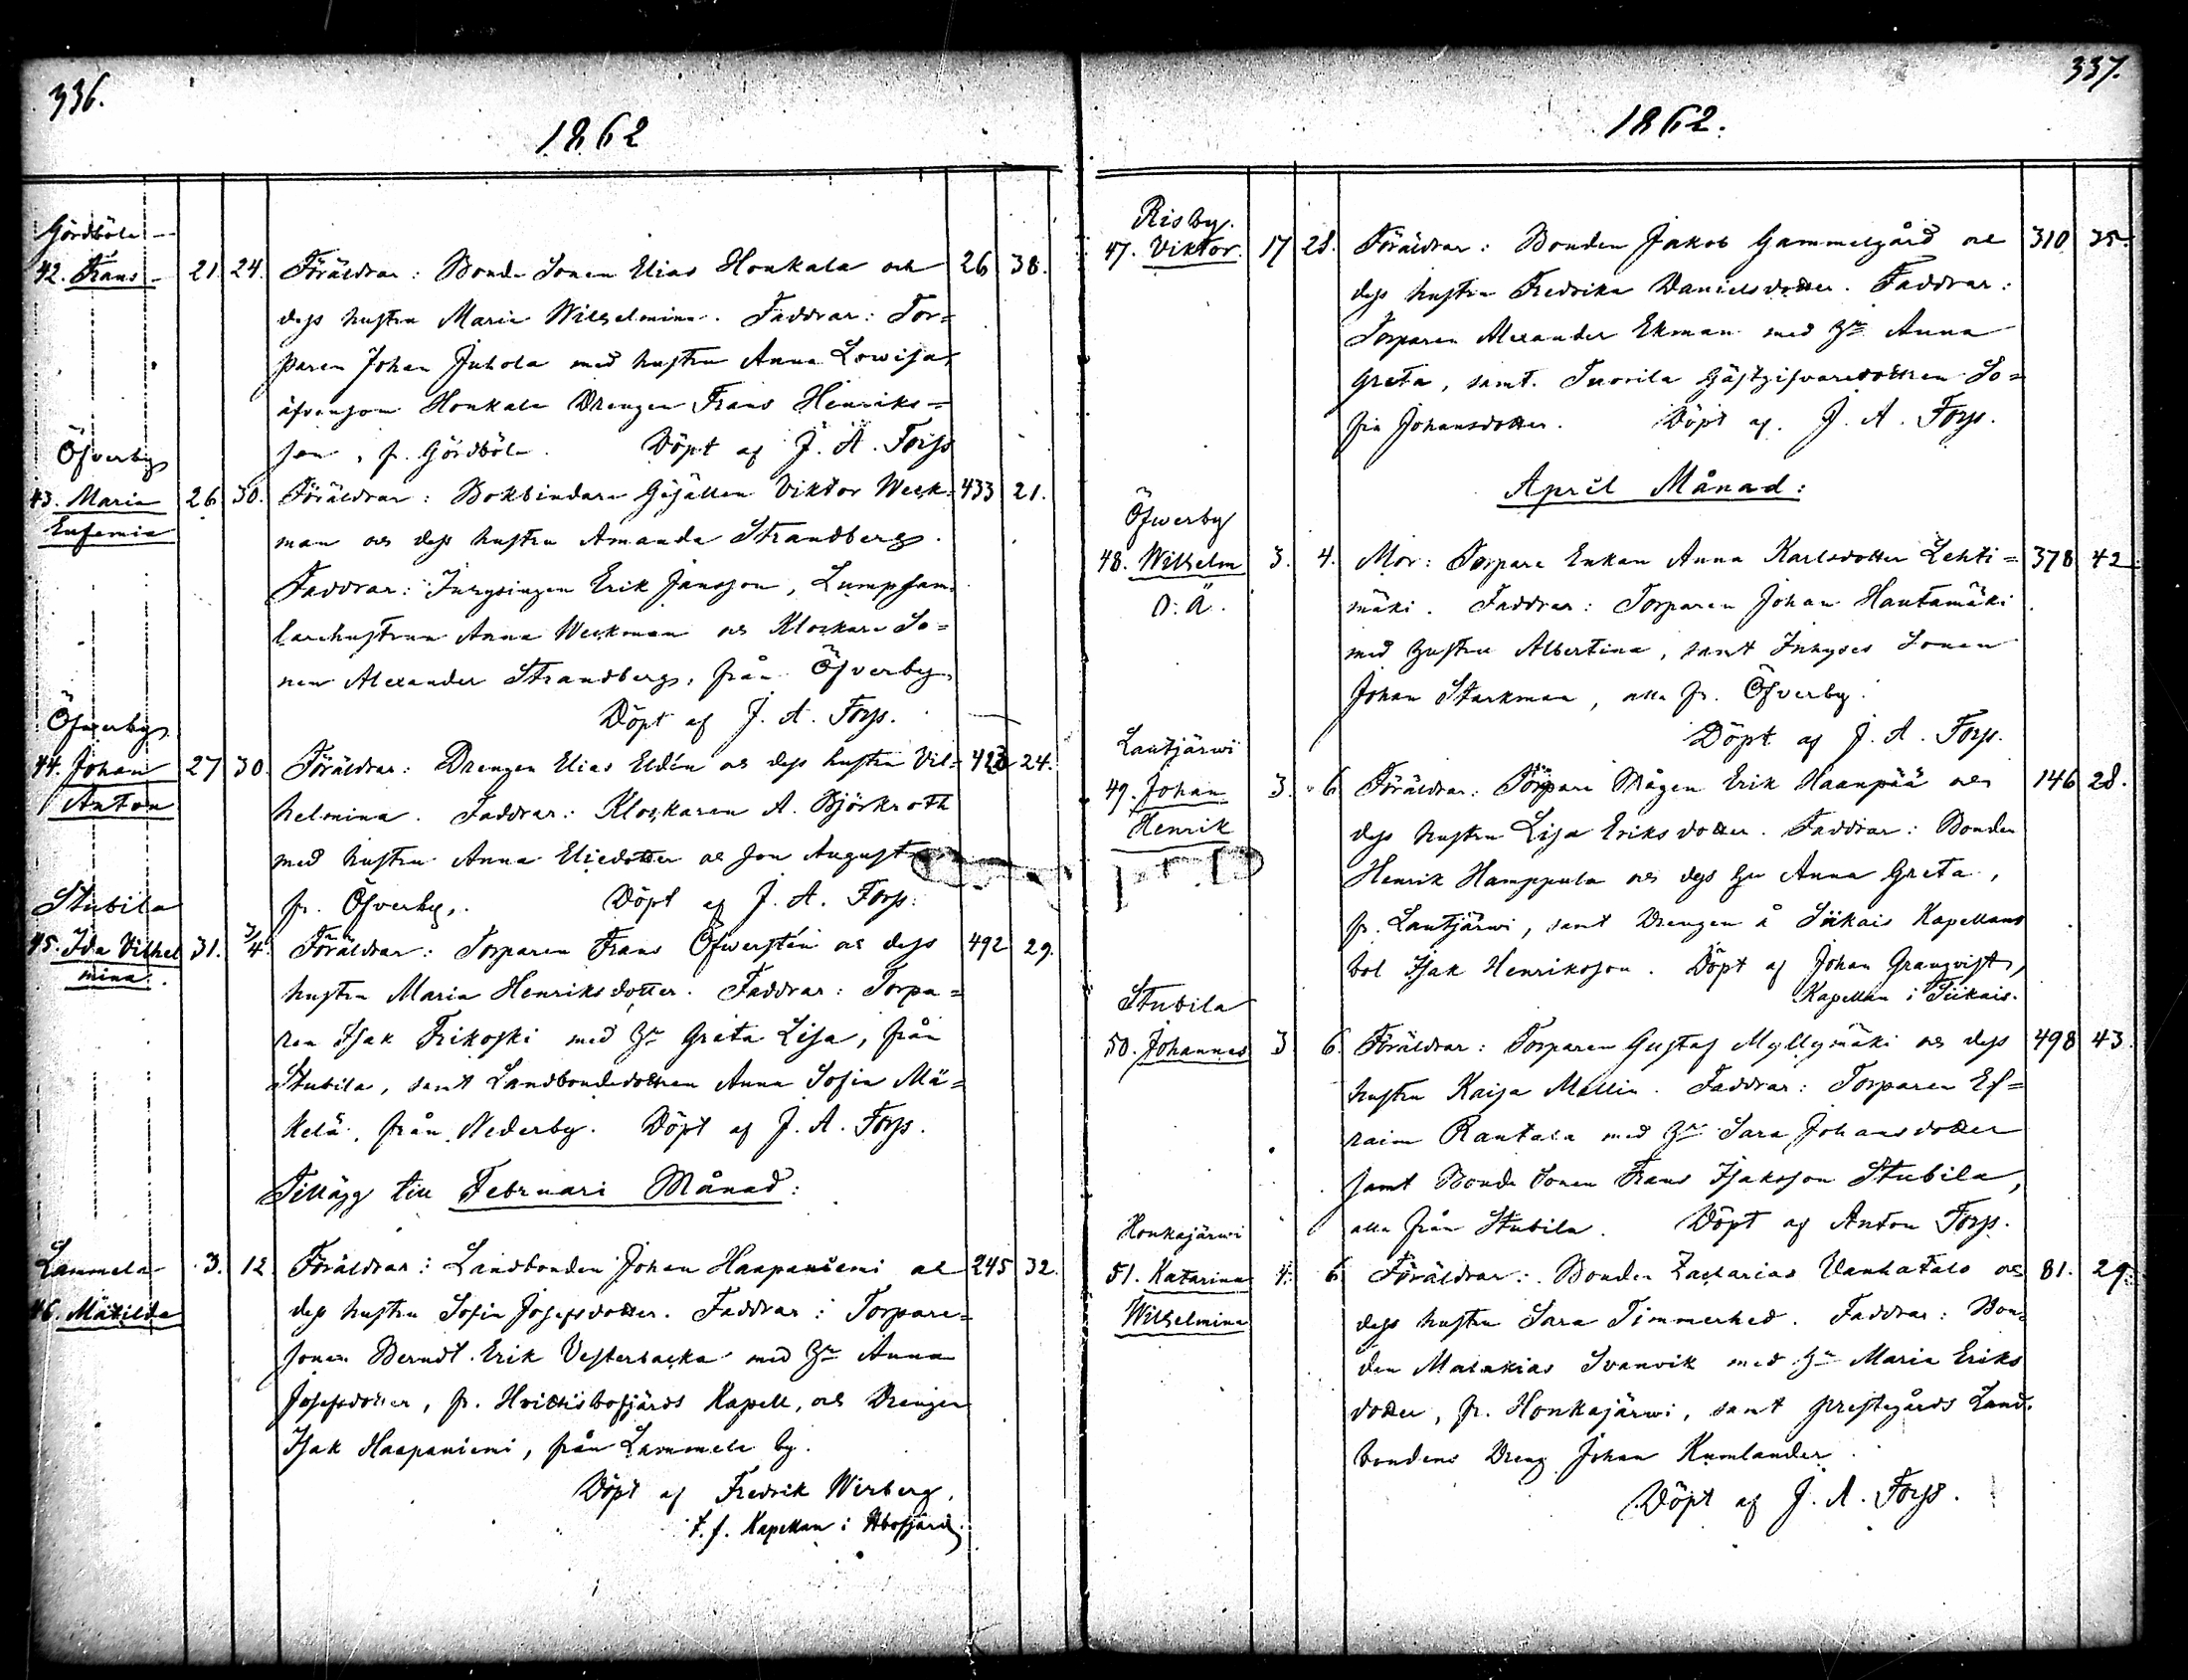 336.
1862
Gördböle
42. Frans 21. 24. Föräldrar: Bonde Sonen Elias Honkala och 26 38.
dess hustru Maria Wilhelmina. Faddrar: Tor=
paren Johan Juhola med hustru Anna Lowisa,
äfvensom Honkala Drengen Frans Henriks=
son, fr. Gördböle. Döpt af J. A. Forss
Öfverby
43. Maria 26 30. Föräldrar: Bokbindare Gesällen Viktor Weck- 433 21.
Eufemia
man och dess hustru Amanda Strandberg.
Faddrar: Inhysingen Erik Jansson, Lumpsam
larehustrun Anna Weckman och Klockare So=
nen Alexander Strandberg, från Öfverby.
Döpt af J. A. Forss.
Öfverby
44. Johan 27 30. Föräldrar: Drengen Elias Eldén och dess hustru Vil= 423 24.
Anton
helmina. Faddrar: Klockaren A. Björkroth
med hustru Anna Eliedotter och son August
fr. Öfverby. Döpt af J. A. Forss.
Stubila
45. Ida Vilhel 31. 3/4. Föräldrar: Torparen Frans Öfwerstén och dess 492 29.
mina.
hustru Maria Henriksdotter. Faddrar: Torpa=
ren Isak Frikoski med Hu Greta Lisa, från
Stubila, samt Landbondedottren Anna Sofia Mä=
kelä, från Nederby. Döpt af J. A. Forss.
Tillägg till Februari Månad:
Lammela 3. 12 Föräldrar: Landbonden Johan Haapaniemi och 245 32.
46. Matilda
dess hustru Sofia Josefsdotter. Faddrar: Torpare=
sonen Berndt Erik Vesterbacka med Hu Anna
Josefsdotter, fr. Hvittisbofjärds Kapell, och Drengen
Isak Haapaniemi, från Lammela by.
Döpt af Fredrik Wirberg,
t. f. Kapellan i Hbofjärd.
337.
1862.
Risby.
47. Viktor. 17 28. Föräldrar: Bonden Jakob Gammelgård och 310 35.
dess hustru Fredrika Danielsdotter. Faddrar:
Torparen Alexander Ekman med Hu Anna
Greta, samt Tuorila Gästgifvaredottren So=
fia Johansdotter. Döpt af J. A. Forss.
April Månad:
Öfwerby
48. Wilhelm 3. 4. Mor: Torpare Enkan Anna Karlsdotter Lehti= 378 42
O. Ä.
mäki. Faddrar: Torparen Johan Hautamäki
med Hustru Albertina, samt Inhyses Sonen
Johan Starkman, alla fr. Öfverby.
Döpt af J. A. Forss.
Lautjärwi
49. Johan 3. 6 Föräldrar: Torpare Mågen Erik Haanpää och 146 28.
Henrik
dess hustru Lisa Eriksdotter. Faddrar: Bonden
Henrik Hamppula och dess Hu Anna Greta,
fr. Lautjärwi, samt Drengen å Siikais Kapellans
bol Isak Henriksson. Döpt af Johan Granqvist,
Kapellan i Siikais.
Stubila
50. Johannes 3 6. Föräldrar: Torparen Gustaf Myllymäki och dess 498 43.
hustru Kaisa Mallin. Faddrar: Torparen Ef=
raim Rantala med Hu Sara Johansdotter
samt Bonde Sonen Frans Isaksson Stubila,
alla från Stubila. Döpt af Anton Forss.
Honkajärwi
51. Katarina 4. 6 Föräldrar: Bonden Zacharias Vanhatalo och 81. 29.
Wilhelmina
dess hustru Sara Timmerhed. Faddrar: Bon=
den Malakias Svanvik med Hu Maria Eriks
dotter, fr. Honkajärwi, samt prestgårds Land.
bondens Dreng Johan Kumlander.
Döpt af J. A. Forss.